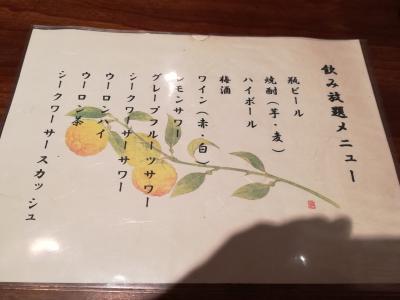 飲み放題メニュー
瓶ビール
焼酎（芋・麦）
ハイボール
梅酒
ワイン（赤・白）
レモンサワー
グレープフルーツサワー
シークワーサーサワー
ウーロンハイ
ウーロン茶
シークワーサースカッシュ